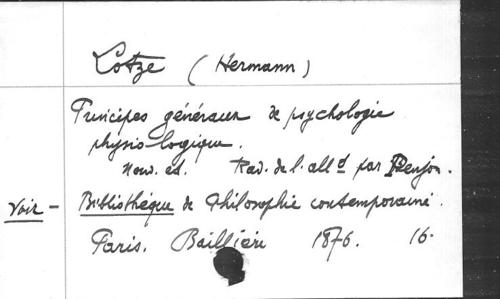 Lotze (Hermann)
Principes généraux de psychologie
physiologique.
Nouv. ed. Trad. de l'alld par Penjon.
Voir - Bibliothèque de Philosophie contemporaine.
Paris. Baillière 1876. 16.